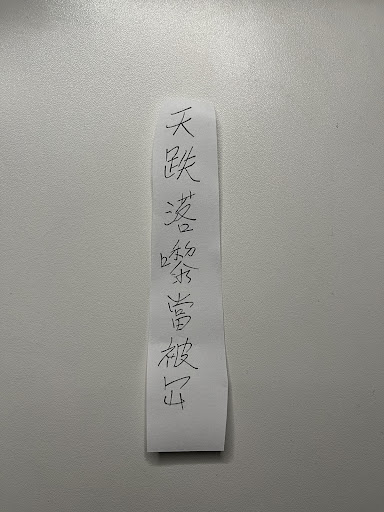 天跌落嚟當被冚